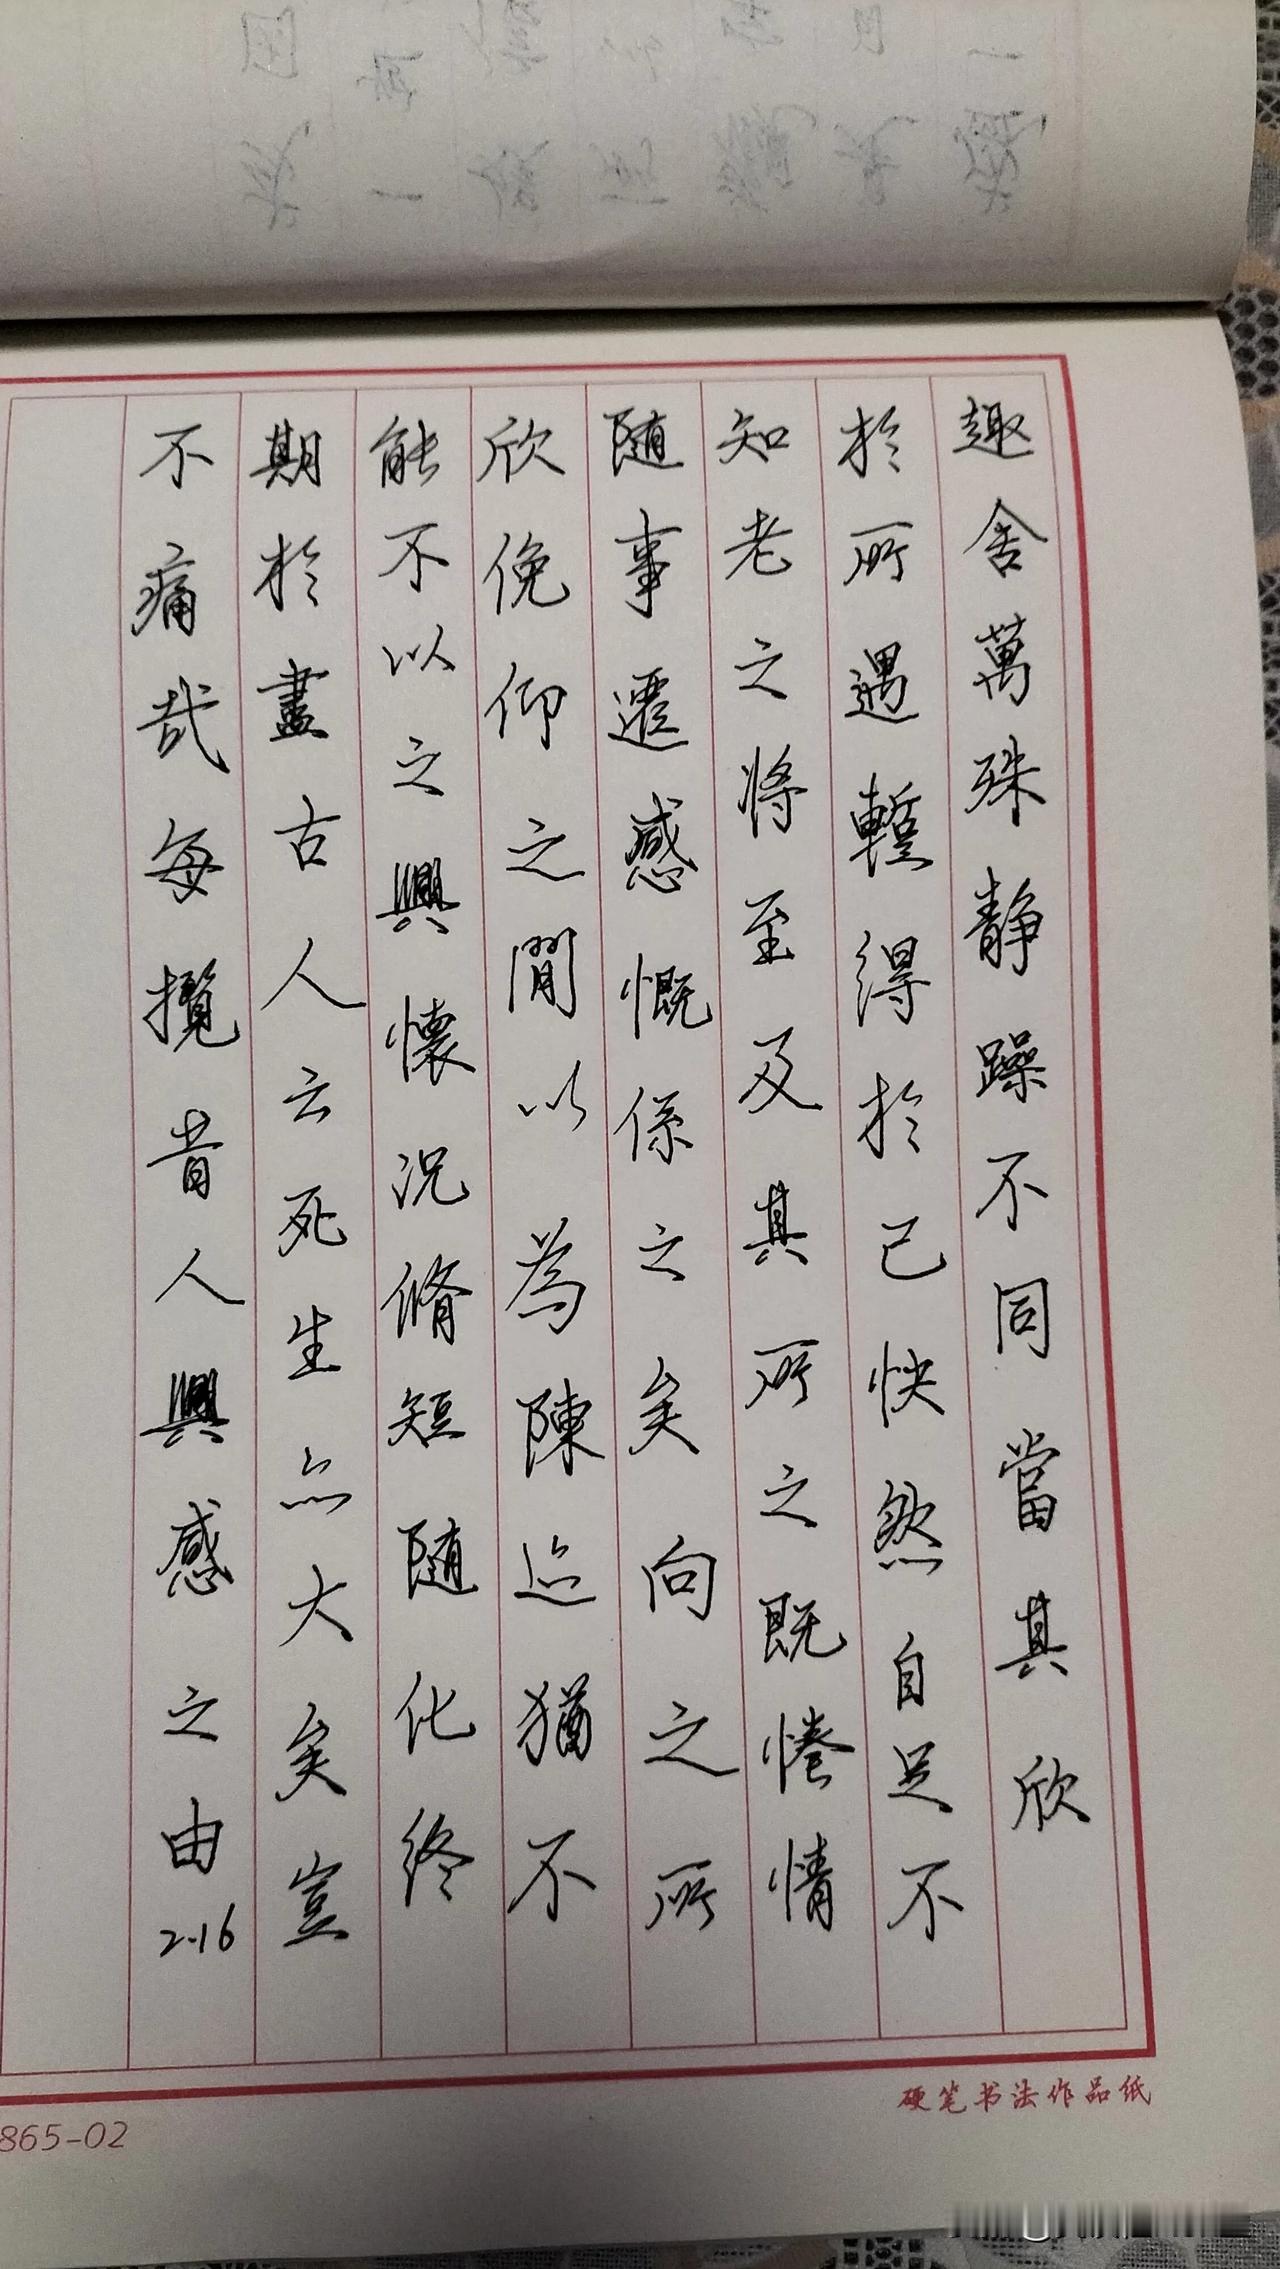 趣舍萬殊静躁不同當其欣
於所遇蹔得於己怏然自足不
知老之將至及其所之既惓情
随事遷感慨係之矣向之所
欣俛仰之閒以為陳迹猶不
能不以之興懷況脩短随化終
期於盡古人云死生亦大矣豈
不痛哉每攬昔人興感之由2.16
硬笔书法作品纸
865-02